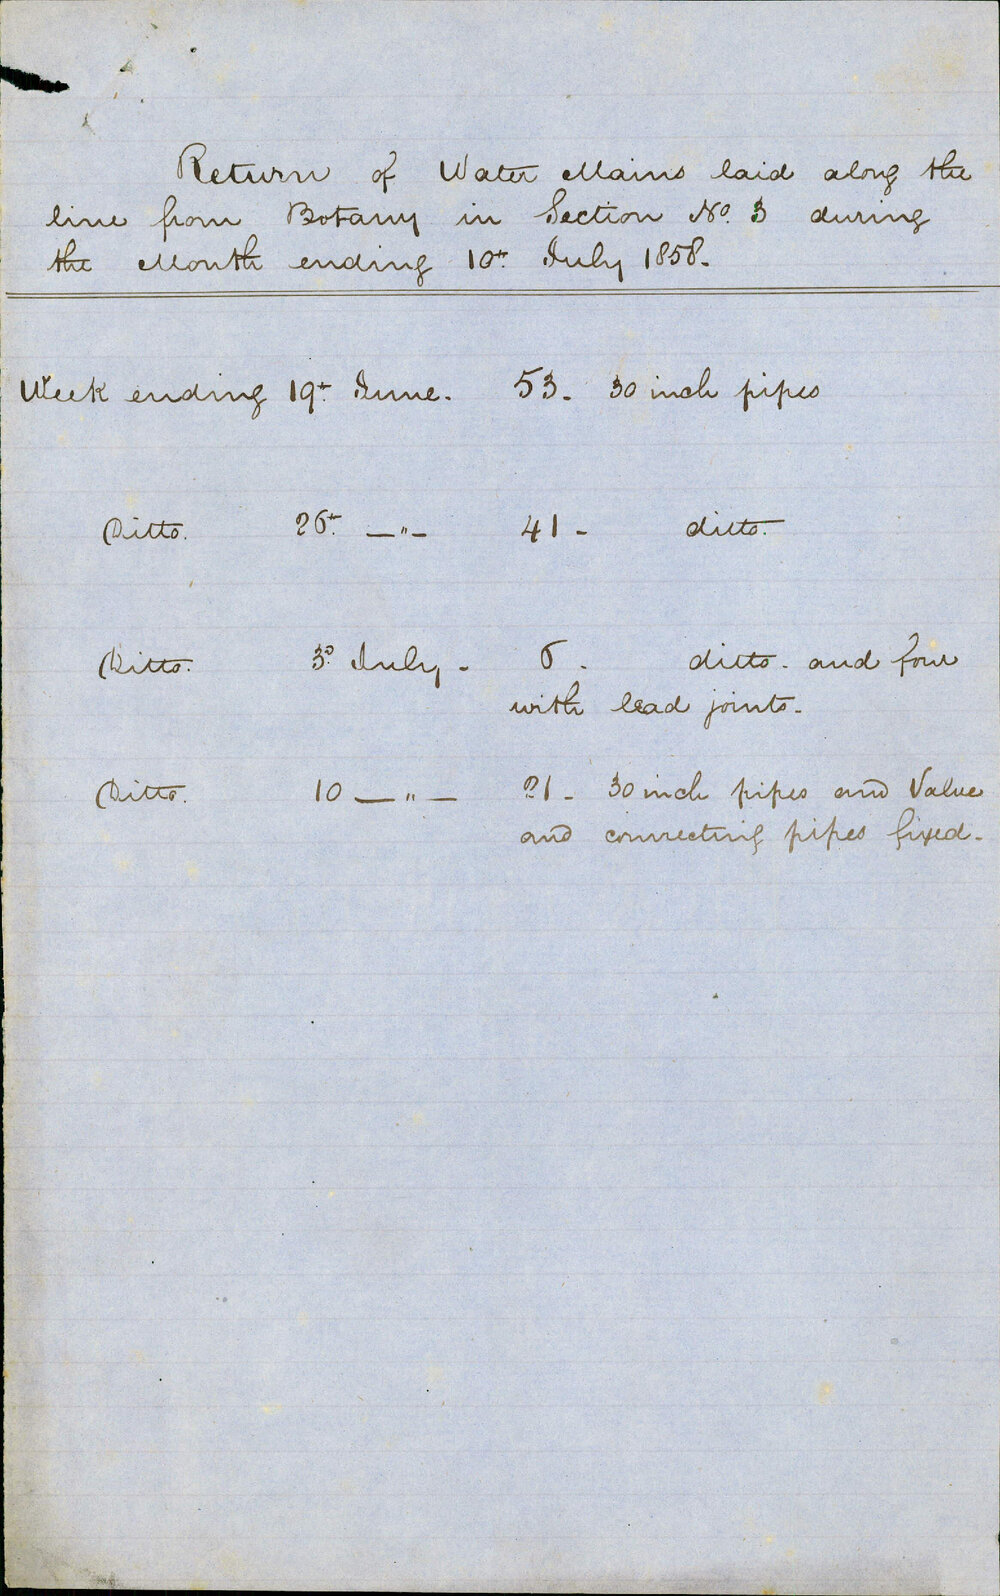 Return of Water Mains laid along the
line from Botany in Section No. 3 during
the Month ending 10th July 1858.
Week ending 19th June. 53. 30 inch pipes
Ditto. 26th —"— 41 - ditto.
Ditto. 3d July - 6 - ditto. and four
with lead joints.
Ditto. 10 —"— 21 - 30 inch pipes and Valve
and connecting pipes fixed.